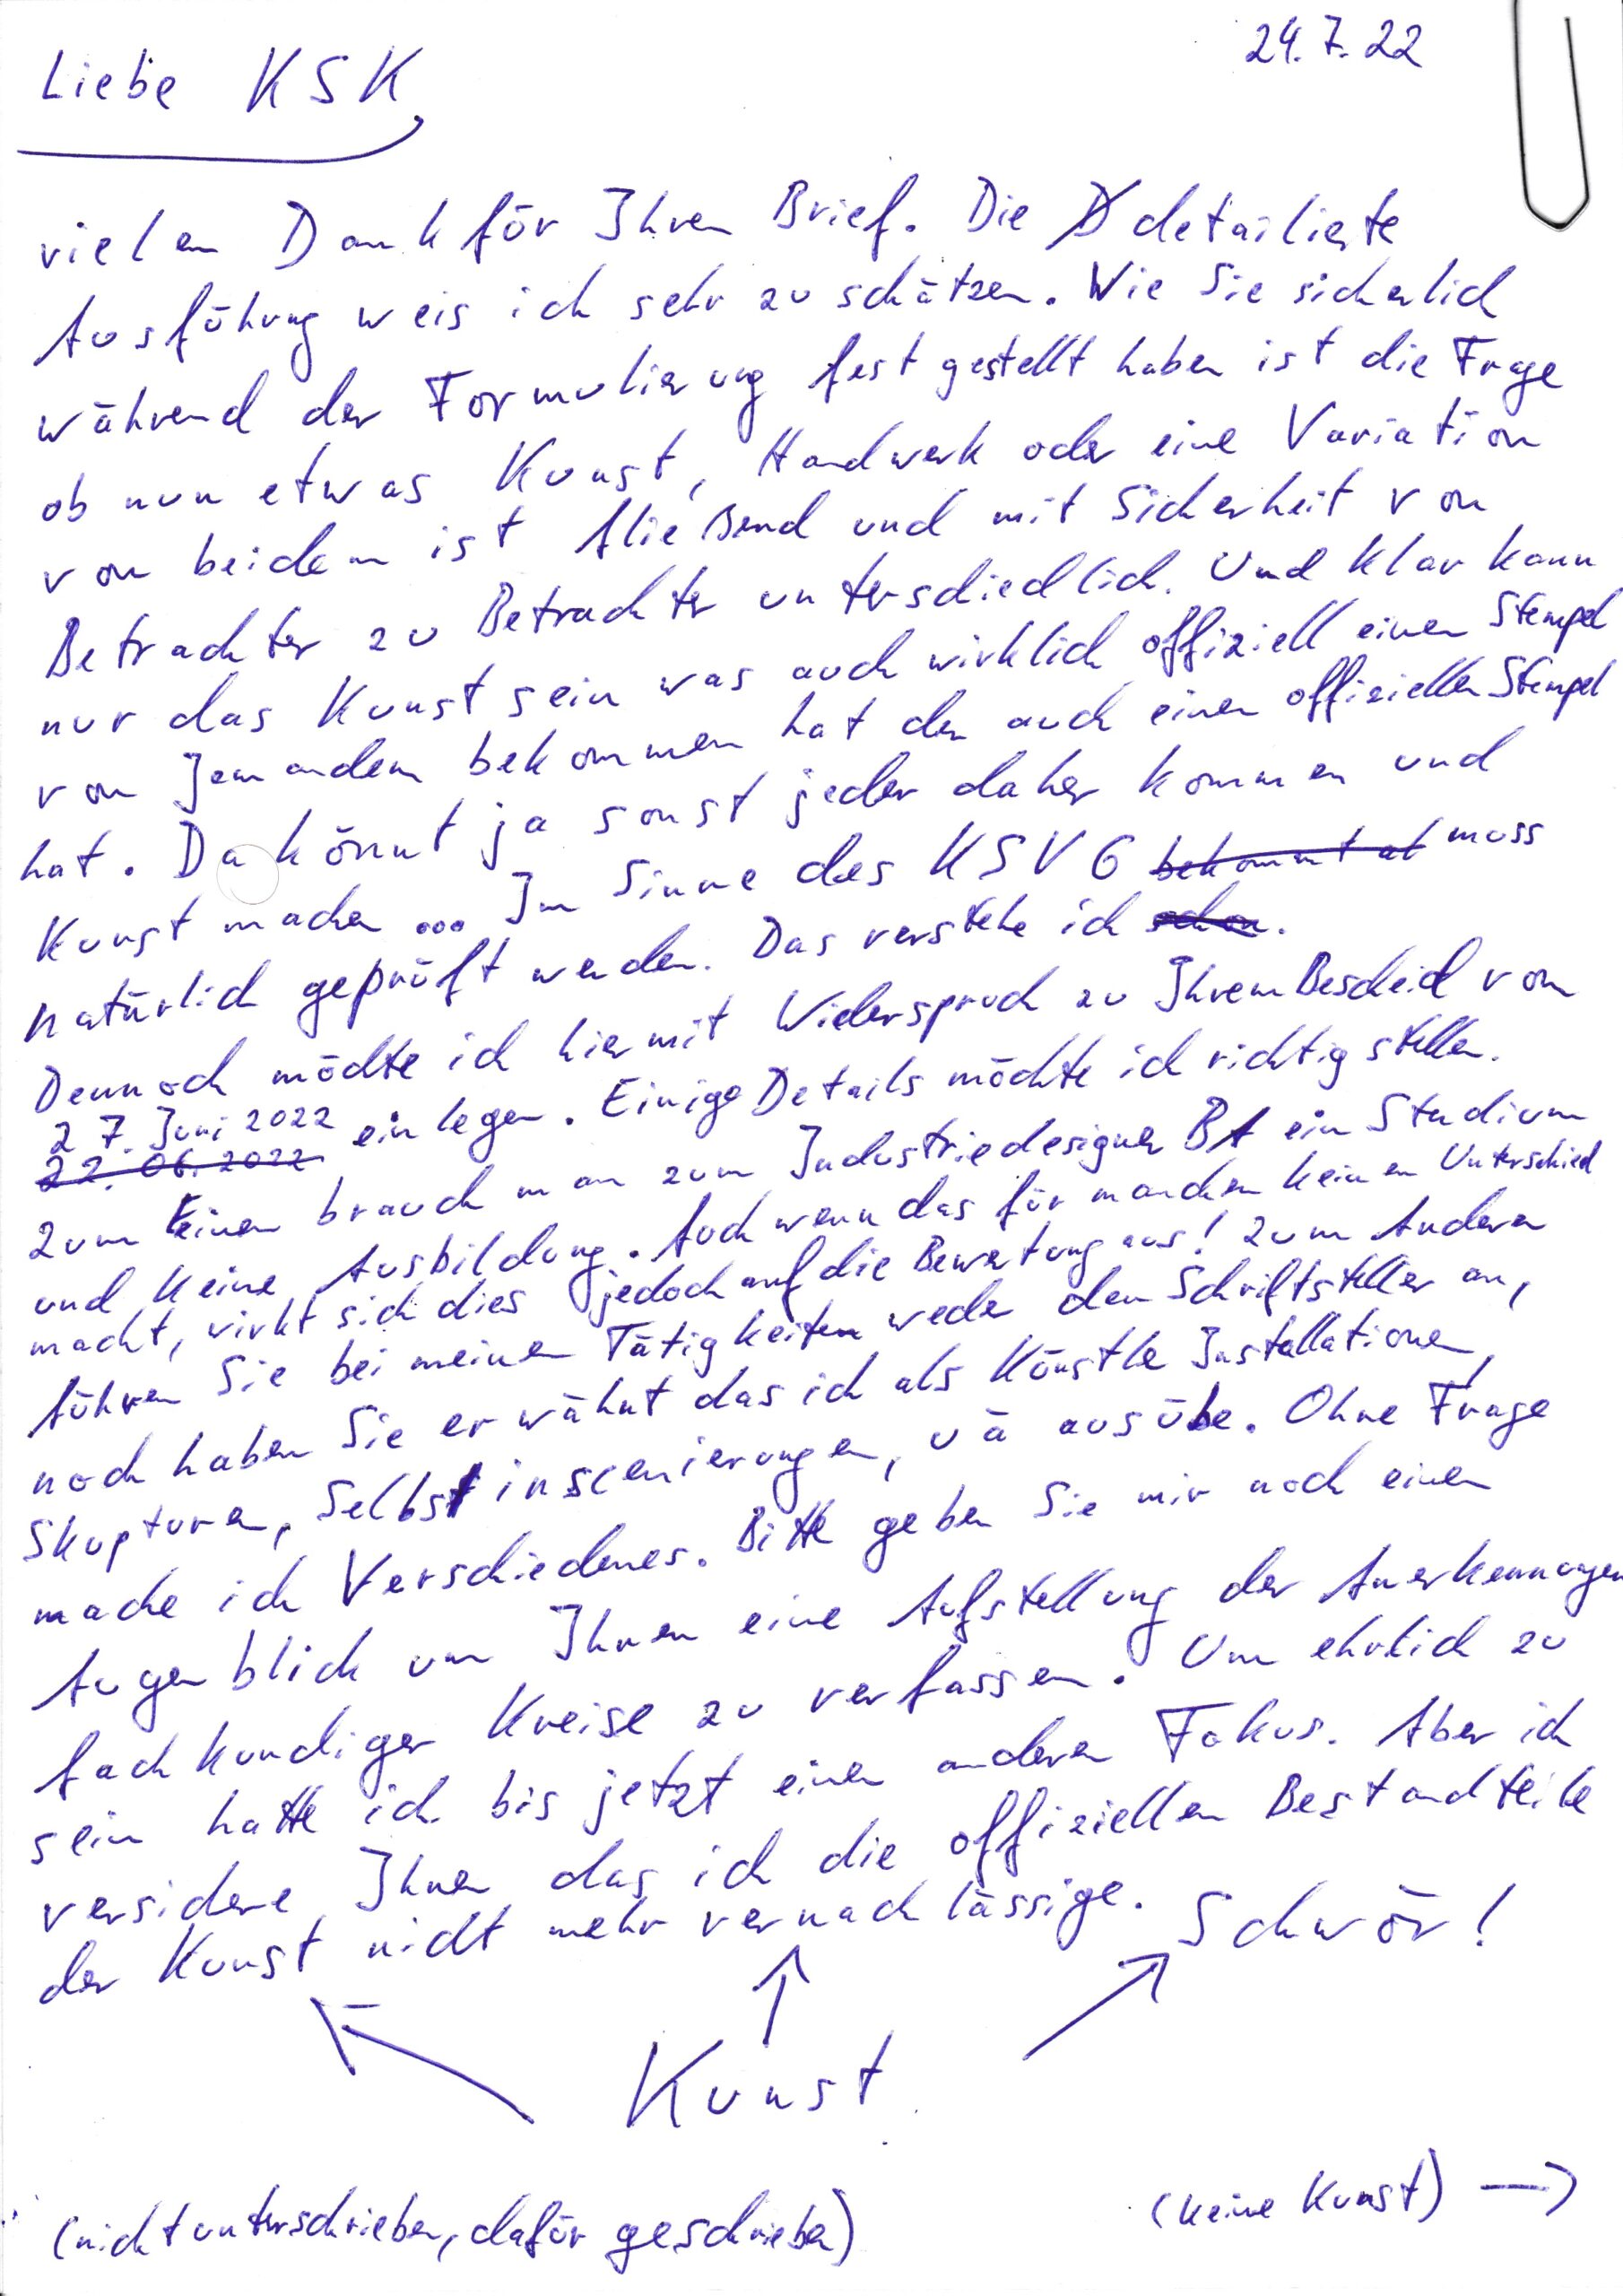 24.7.22
Liebe KSK,
vielen Dank für Ihren Brief. Die detailierte
Ausführung weis ich sehr zu schätzen. Wie Sie sicherlich
während der Formulierung fest gestellt haben ist die Frage
ob nun etwas Kunst, Handwerk oder eine Variation
von beidem ist fließend und mit Sicherheit von
Betrachter zu Betrachter unterschiedlich. Und klar kann
nur das Kunst sein was auch wirklich offiziell einen Stempel
von Jemandem bekommen hat der auch einen offiziellen Stempel
hat. Da könnt ja sonst jeder daher kommen und
Kunst machen ... Im Sinne des KSVG bekommt muss
natürlich geprüft werden. Das verstehe ich schon.
Dennoch möchte ich hiermit Widerspruch zu Ihrem Bescheid vom
27. Juni 2022
22.06.2022 einlegen. Einige Details möchte ich richtig stellen.
Zum Einen brauch man zum Industriedesigner BA ein Studium
und keine Ausbildung. Auch wenn das für manchen keinen Unterschied
macht, wirkt sich dies jedoch auf die Bewertung aus! Zum Anderen
führen Sie bei meinen Tätigkeiten weder den Schriftsteller an,
noch haben Sie erwähnt das ich als Künstler Installationen,
Skupturen, Selbstinscenierungen, uä ausübe. Ohne Frage
mache ich Verschiedenes. Bitte geben Sie mir noch einen
Augenblick um Ihnen eine Aufstellung der Anerkennungen
fachkundiger Kreise zu verfassen. Um ehrlich zu
sein hatte ich bis jetzt einen anderen Fokus. Aber ich
versichere Ihnen das ich die offiziellen Bestandteile
der Kunst nicht mehr vernachlässige. Schwör!
Kunst
(keine Kunst) →
(nicht unterschrieben, dafür geschrieben)